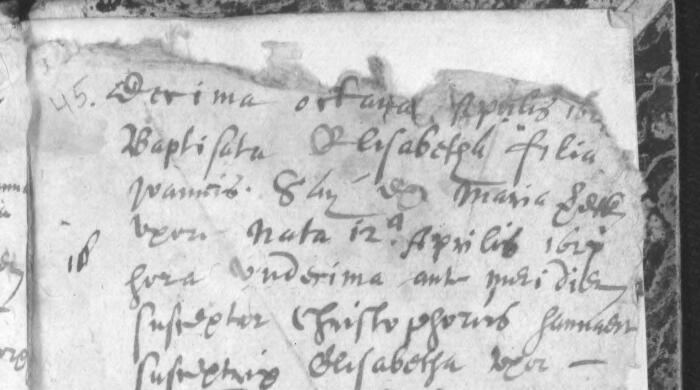 45. Decima octava Aprilis
Baptisata Elisabetha filia
Joannis Say et Maria
uxor Nata 12a Aprilis
16
hora undecima ante meridiem
susceptor Christophorus
susceptrix Elisabetha uxor —